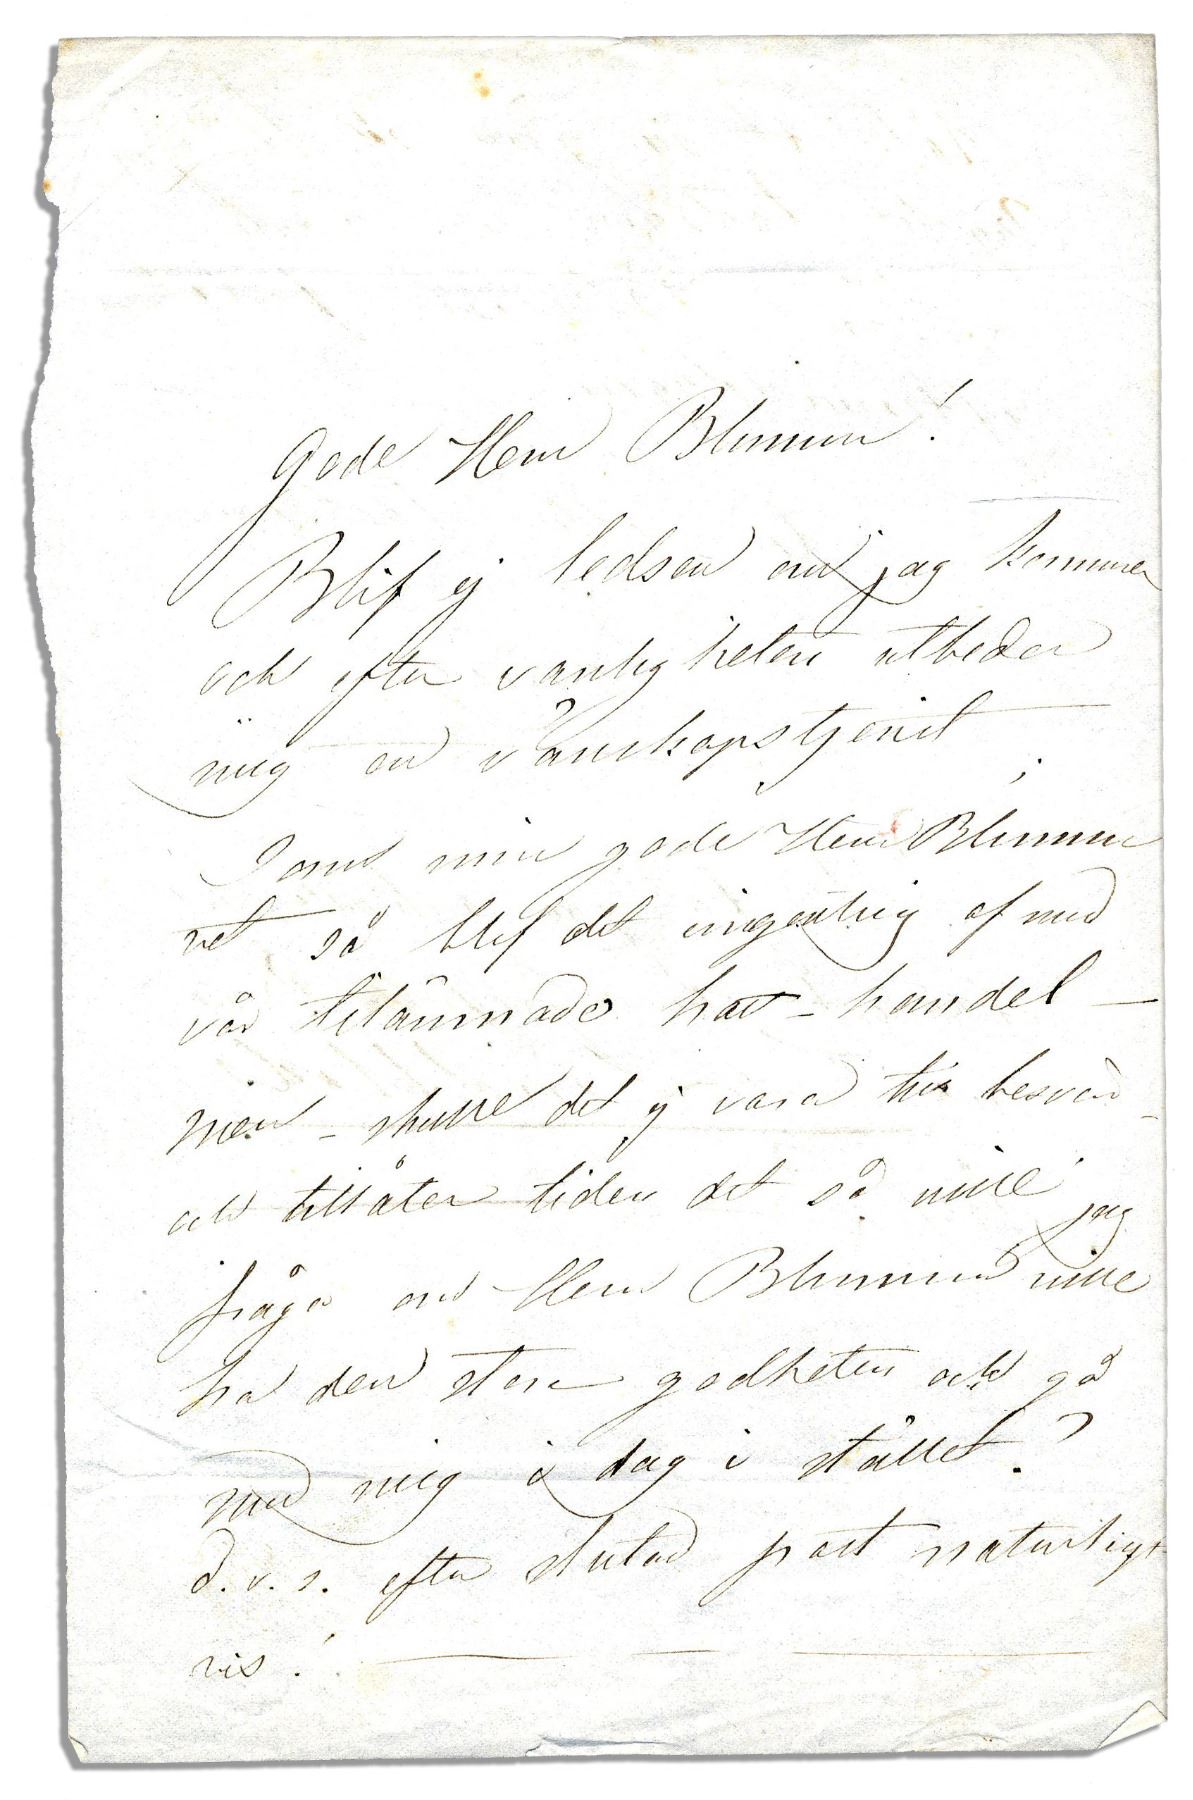 Gode Herr Blumm!
Blif ej ledsen om jag kommer
och efter vanligheten utbeder
mig en vänskapstjenst
Som min gode Herr Blumm
vet så blef det ingenting af med
vår tilämnade hatt-handel —
men - skulle det ej vara till besvär -
och tillåter tiden det så ville jag
fråga om Herr Blumm ville
ha den stora godheten och gå
med mig i dag i stället?
d.v.s. efter slutad post naturligt
vis!